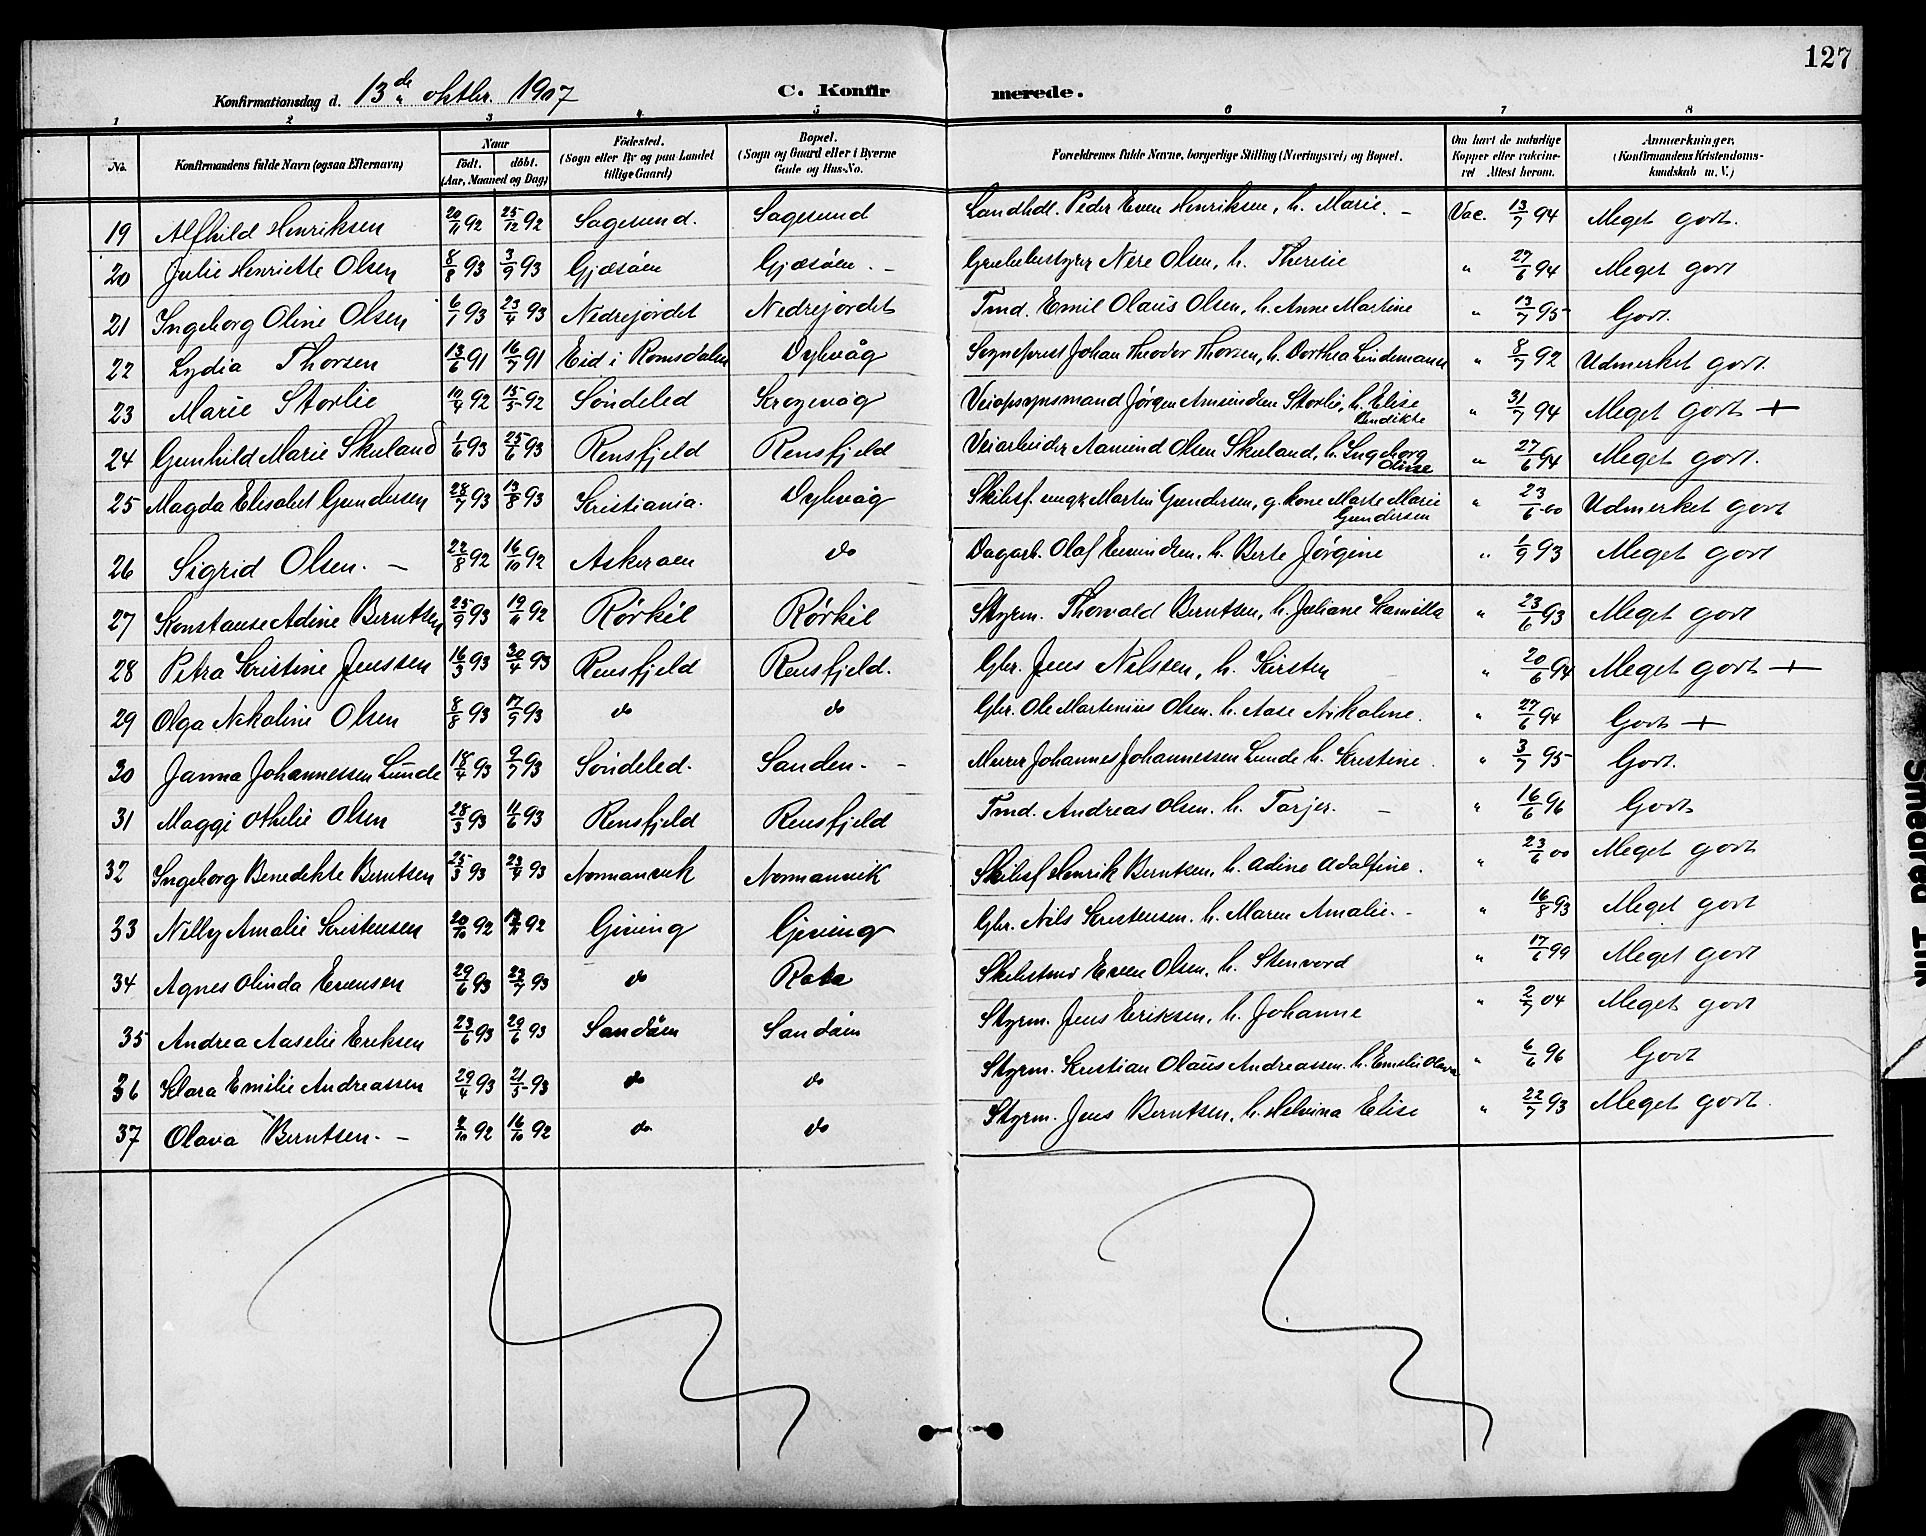 127
Konfirmationsdag d. 13de oktbr. 1907 C. Konfirmerede.
1 2 3 4 5 6 7 8
No. Konfirmandens fulde Navn (ogsaa Efternavn) Naar født. døbt. (Aar, Maaned og Dag) Fødested. (Sogn eller By og paa Landet tillige Gaard) Bopæl. (Sogn og Gaard eller i Byerne Gade og Hus-No. Forældrenes fulde Navne, borgerlige Stilling (Næringsvei) og Bopæl. Om havt de naturlige Kopper eller vakcineret Attest herom. Anmærkninger. (Konfirmandens Kristendomskundskab m. V.)
19 Alfhild Henriksen 20/11 92 25/12 92 Sagesund. Sagesund Landhdl. Peder Even Henriksen, h. Marie. – Vac. 13/7 94 Meget godt.
20 Julie Henriette Olsen 8/8 93 3/9 93 Gjæsöen Gjæsöen. – Nere Olsen, h. Therese " 27/6 94 Meget godt
21 Ingeborg Oline Olsen 6/1 93 23/4 93 Nedrejordet Nedrejordet Tmd. Emil Olaus Olsen, h. Anne Martine " 13/7 95 Godt.
22 Lydia Thorsen 13/6 91 16/7 91 Eid i Romsdalen Dybvåg Sogneprest Johan Theodor Thorsen, h. Dorthea Lindemann " 8/7 92 Udmerket godt.
23 Marie Storlie 10/4 92 15/5 92 Söndeled Krogevåg Veiopsynsmand Jörgen Amundsen Storli, h. Elise Bendikte " 31/7 94 Meget godt +
24 Gunhild Marie Skuland 1/6 93 25/6 93 Rensfjeld Rensfjeld Veiarbeider Aamund Olsen Skuland, h. Ingeborg Olisse " 27/6 94 Meget godt.
25 Magda Elisabet Gundersen 28/7 93 13/8 93 Kristiania. Dybvåg Skibsf. Martin Gundersen, g. kone Marte Marie Gundersen " 23/6 00 Udmerket godt
26 Sigrid Olsen. – 22/8 92 16/10 92 Askeröen do Dagarb. Olaf Evindsen, h. Berte Jörgine " 1/9 93 Meget godt
27 Konstanse Adine Berntsen 25/9 93 19/11 92 Rörkil Rörkil Styrm. Thorvald Berntsen, h. Juliane Kamilla " 23/6 93 Meget godt
28 Petra Kristine Jenssen 16/3 93 30/4 93 Rensfjeld Rensfjeld. Gbr. Jens Nilssen, h. Kirsten " 20/6 94 Meget godt +
29 Olga Nikoline Olsen 8/8 93 17/9 93 do do Gbr. Ole Martinius Olsen. h. Aase Nikoline. " 27/6 94 Godt +
30 Janna Johannessen Lunde 18/4 93 9/7 93 Söndeled. Sanden. – Murer Johannes Johannessen Lunde h. Kristine. " 3/7 95 Godt.
31 Maggi Othelie Olsen 28/3 93 11/6 93 Rensfjeld Rensfjeld Tmd. Andreas Olsen. h. Tarjer. – " 16/6 96 Godt
32 Ingeborg Benedikte Berntsen 25/3 93 23/4 93 Normanvik Normanvik Skibsf Henrik Berntsen, h. Adine Adolfine. " 23/6 00 Meget godt
33 Nilly Amalie Kristensen 20/10 92 92 Gjeving Gjeving Gbr. Nils Kristensen. h. Maren Amalie. – " 16/8 93 Meget godt
34 Agnes Olinda Evensen 29/6 93 23/7 93 do Rota Skibstmd Even Olsen. h. Stenvord " 17/6 99 Meget godt
35 Andrea Aaselie Eriksen 23/6 93 29/6 93 Sandöen Sandöen Styrm. Jens Eriksen, h. Johanne " 2/7 04 Meget godt
36 Klara Emilie Andreassen 29/4 93 21/5 93 do do Styrm. Kristian Olaus Andreassen. h. Emelie Olava " 6/6 96 Godt
37 Olava Berntsen. – 2/10 92 16/10 92 do. do Styrm. Jens Berntsen, h. Helmina Elise " 22/7 93 Meget godt.